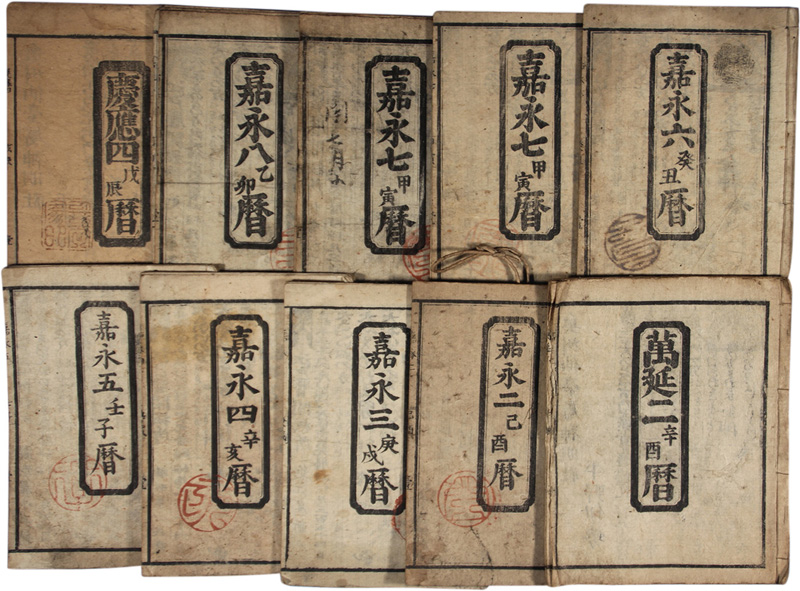 嘉永六癸丑暦
嘉永七甲寅暦
嘉永七甲寅暦
閏七月小
嘉永八乙卯暦
慶應四戊辰暦
萬延二辛酉暦
嘉永二己酉暦
嘉永三庚戌暦
嘉永四辛亥暦
嘉永五壬子暦